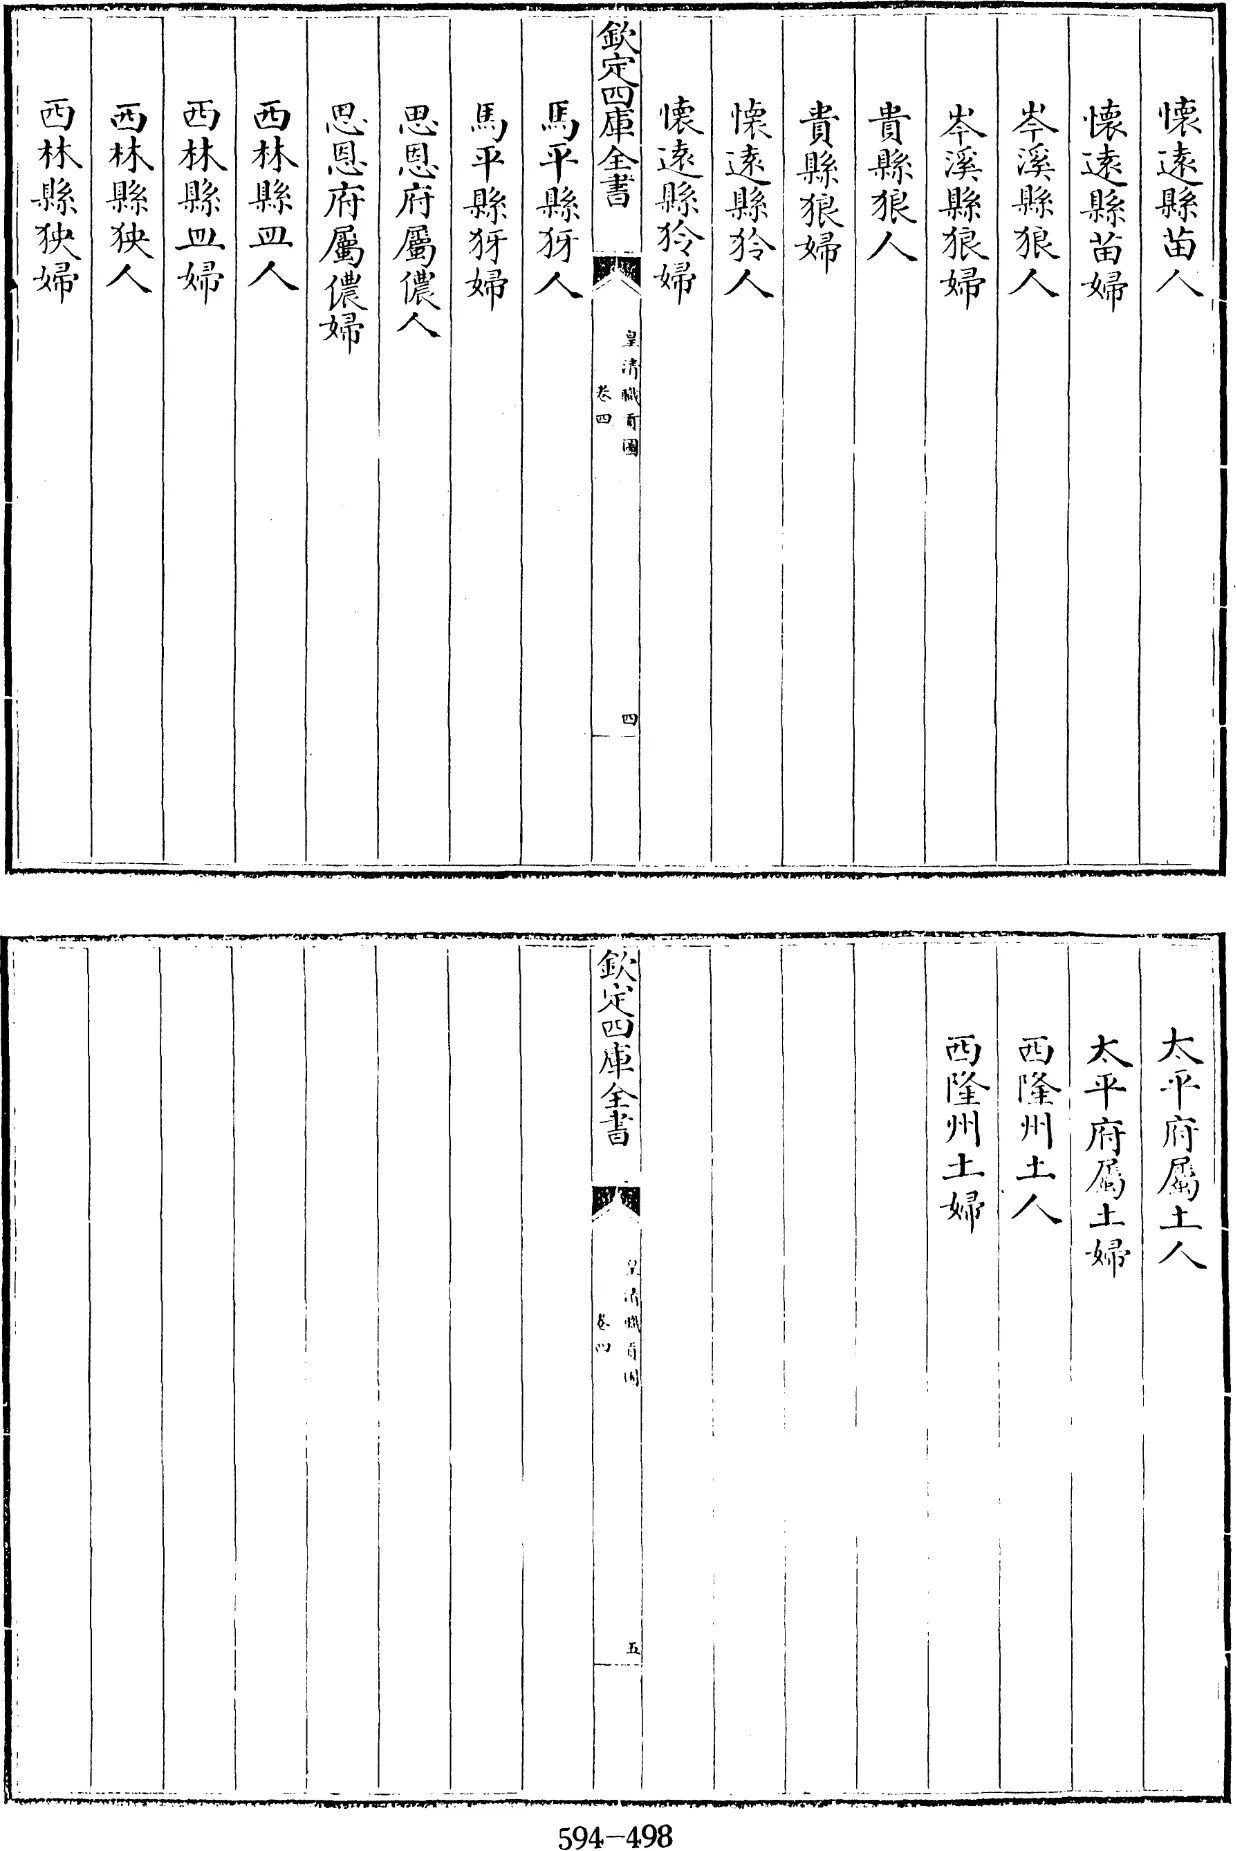 懷遠縣苗人
懷遠縣苗婦
岑溪縣狼人
岑溪縣狼婦
貴縣狼人
貴縣狼婦
懷遠縣狑人
懷遠縣狑婦
欽定四庫全書
皇清職貢圖
卷四
四
馬平縣犽人
馬平縣犽婦
思恩府屬儂人
思恩府屬儂婦
西林縣皿人
西林縣皿婦
西林縣狭人
西林縣狭婦
太平府屬土人
太平府屬土婦
西隆州土人
西隆州土婦
欽定四庫全書
皇清職貢圖
卷四
五
594-498